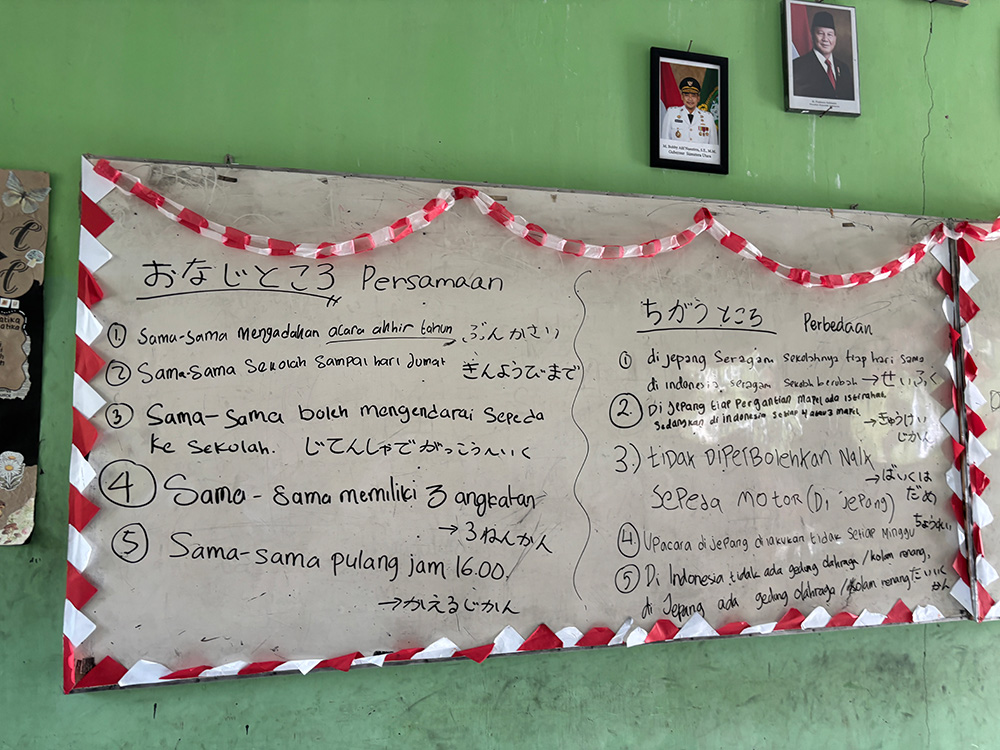 おなじところ Persamaan
① Sama-sama mengadakan acara akhir tahun ぶんかさい
② Sama-sama Sekolah Sampai hari Jumat きんようびまで
③ Sama-sama boleh mengendarai sepeda
ke sekolah. じてんしゃでがっこうへいく
④ Sama-sama memiliki 3 angkatan
→3ねんかん
⑤ Sama-sama pulang jam 16.00.
→かえるじかん
ちがうところ Perbedaan
① di jepang Seragam sekolahnya tiap hari sama
di indonesia, seragam sekolah berubah →せいふく
② Di Jepang tiap Pergantian mapel ada istirahat,
Sedangkan di indonesia setiap 4 atau 3 mapel
→きゅうけい
じかん
3.) tidak DiPerbolehkan Naik
→ばいくは
SePeda MOTOR (Di Jepang) だめ
④ Upacara di jepang dilakukan tidak Setiap Minggu ちょうれい
⑤ Di Indonesia tidak ada gedung olahraga /kolam renang,
di Jepang ada gedung olahraga /kolam renang たいいく
かん
M. Bobby Afif Nasution, S.E., M.M.
Gubernur Sumatera Utara